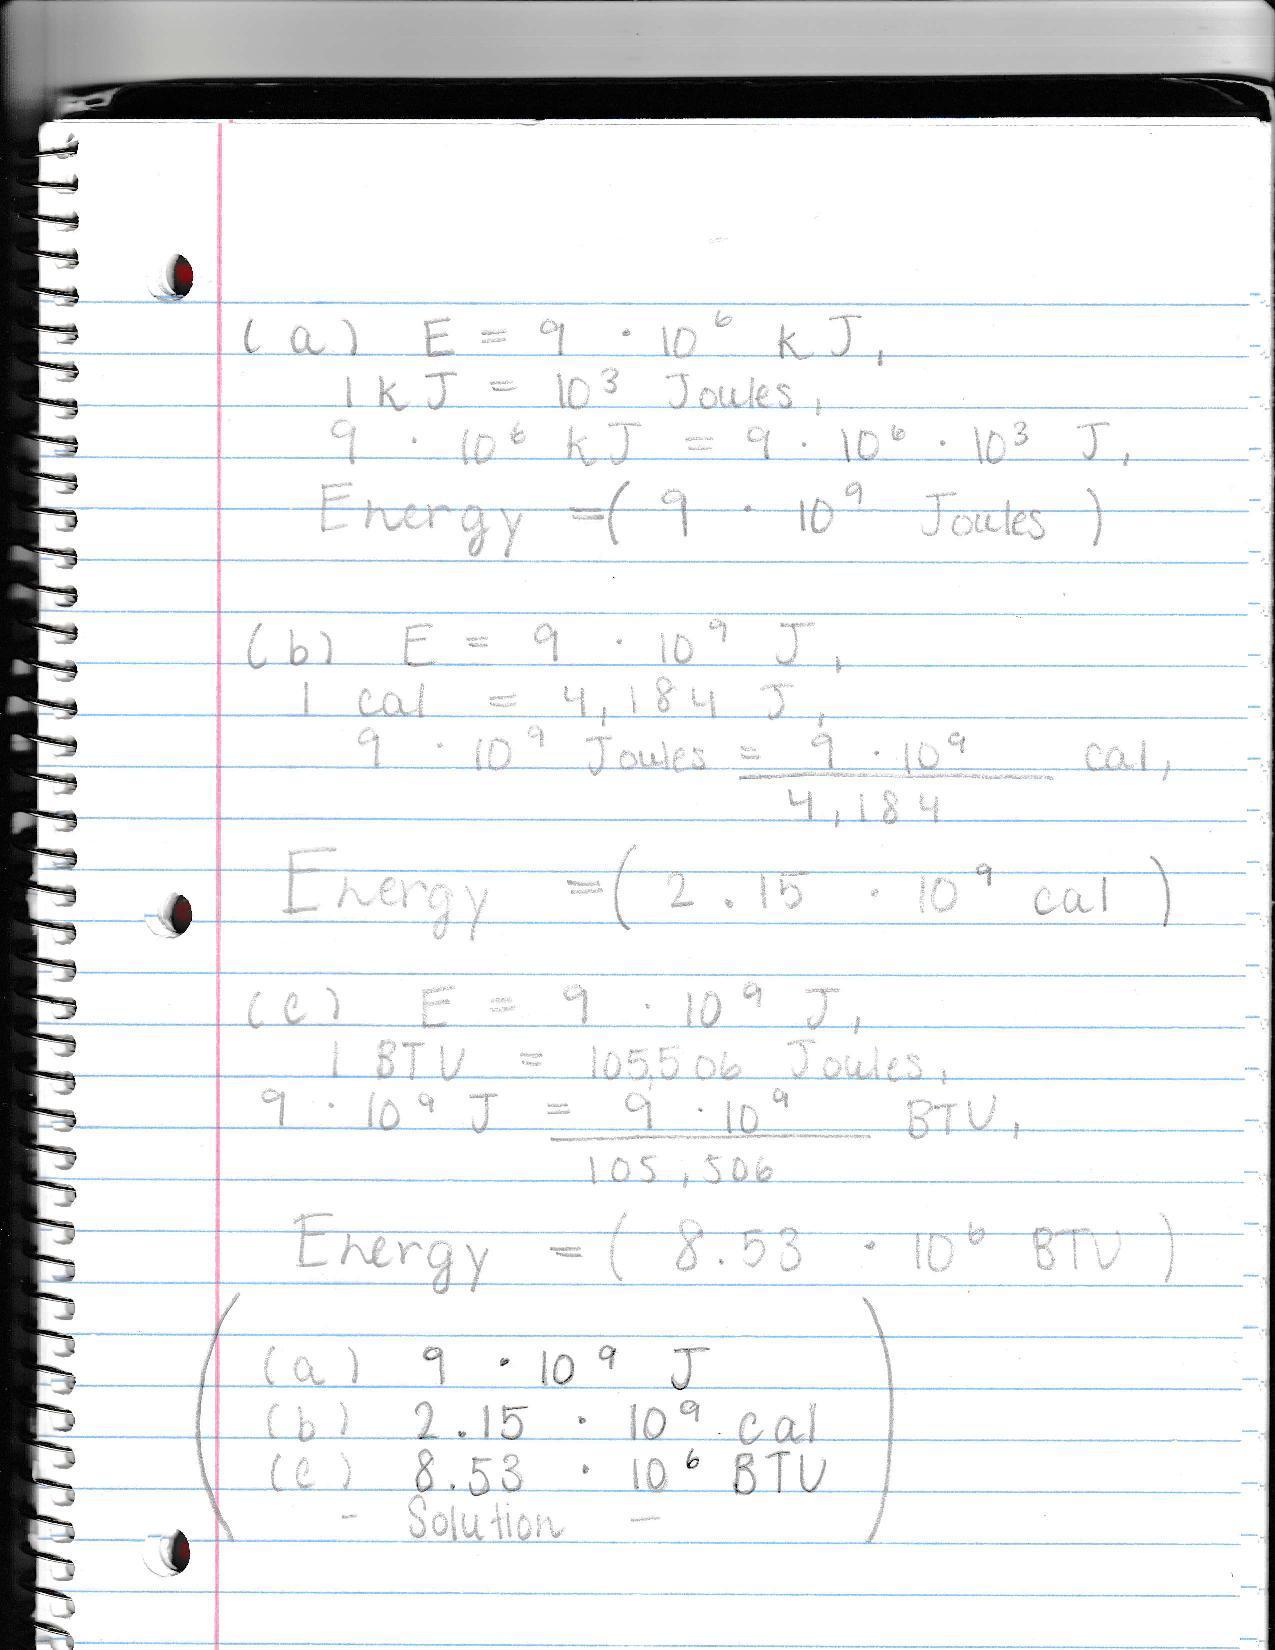 (a) E = 9 · 10⁶ kJ,
1 kJ = 10³ Joules,
9 · 10⁶ kJ = 9 · 10⁶ · 10³ J,
Energy =( 9 · 10⁹ Joules )
(b) E = 9 · 10⁹ J,
1 cal = 4,184 J,
9 · 10⁹ Joules = 9 · 10⁹ cal,
4,184
Energy =( 2.15 · 10⁹ cal )
(c) E = 9 · 10⁹ J,
1 BTU = 105,506 Joules,
9 · 10⁹ J = 9 · 10⁹ BTU,
105,506
Energy = ( 8.53 · 10⁶ BTU )
(a) 9 · 10⁹ J
(b) 2.15 · 10⁹ cal
(c) 8.53 · 10⁶ BTU
- Solution -